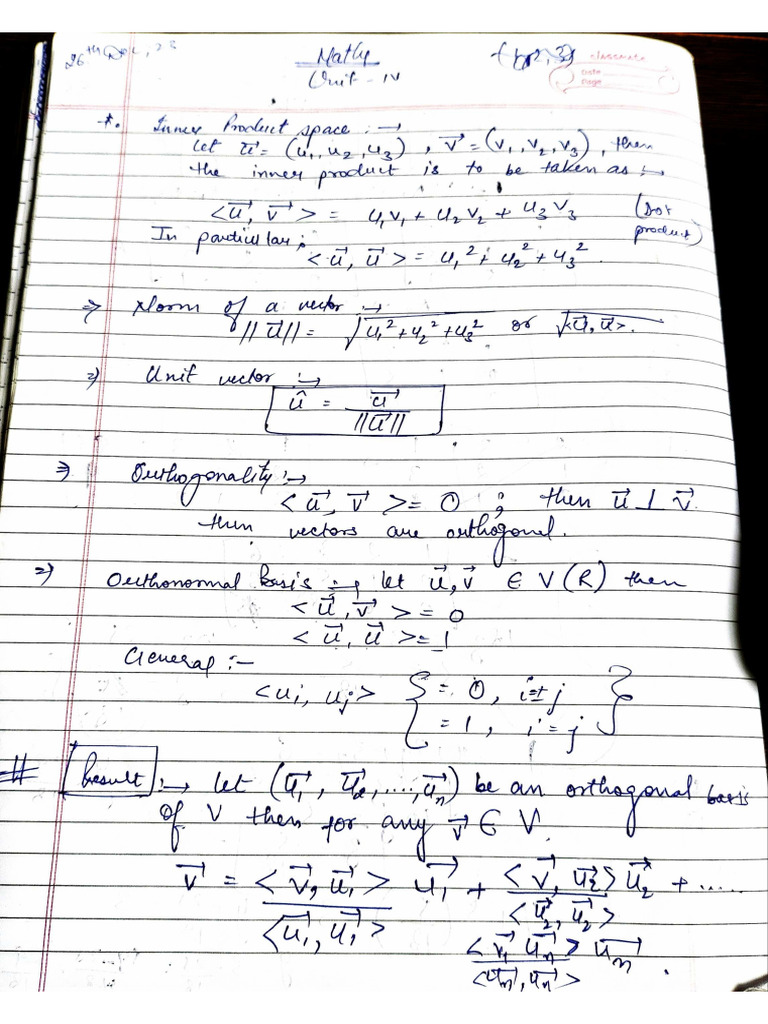 26th Dec, 23
Maths
Unit - IV
classmate
Date
Page
*. Inner Product space :→
Let u⃗ = (u₁, u₂, u₃), v⃗ = (v₁, v₂, v₃), then
the inner product is to be taken as :→
<u⃗, v⃗> = u₁v₁ + u₂v₂ + u₃v₃ (Dot product)
In particular,
<u⃗, u⃗> = u₁² + u₂² + u₃².
⇒ Norm of a vector :→
||u⃗|| = √(u₁² + u₂² + u₃²) or √<u⃗, u⃗>.
⇒ Unit vector :→
û = u⃗ / ||u⃗||
⇒ Orthogonality :→
<u⃗, v⃗> = 0 ; then u⃗ ⊥ v⃗
then vectors are orthogonal.
⇒ Orthonormal Basis :→ let u⃗, v⃗ ∈ V(R) then
<u⃗, v⃗> = 0
<u⃗, u⃗> = 1
General :-
<ui, uj> { = 0, i ≠ j
= 1, i = j }
# Result :→ let (u⃗₁, u⃗₂, ...., u⃗n) be an orthogonal basis
of V then for any v⃗ ∈ V
v⃗ = <v⃗, u⃗₁> / <u⃗₁, u⃗₁> u⃗₁ + <v⃗, u⃗₂> / <u⃗₂, u⃗₂> u⃗₂ + .....
<v⃗, u⃗n> / <u⃗n, u⃗n> u⃗n.